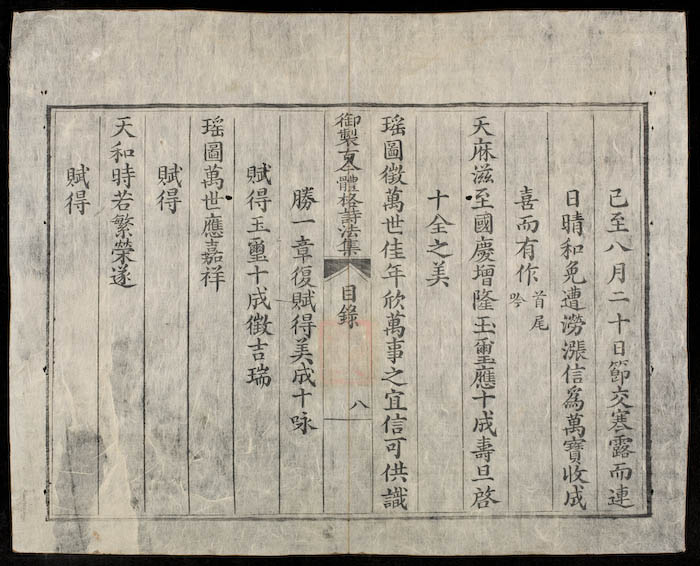 己至八月二十日節交寒露而連
日晴和免遭澇漲信為萬寶收成
喜而有作首尾吟
天庥滋至國慶增隆玉璽應十成壽旦啓
十全之美
瑶圖徵萬世佳年欣萬事之宜信可供識
御製古今體格詩法集 目錄 八
勝一章復賦得美成十咏
賦得玉璽十成徵吉瑞
瑶圖萬世應嘉祥
賦得
天和時若繁榮遂
賦得